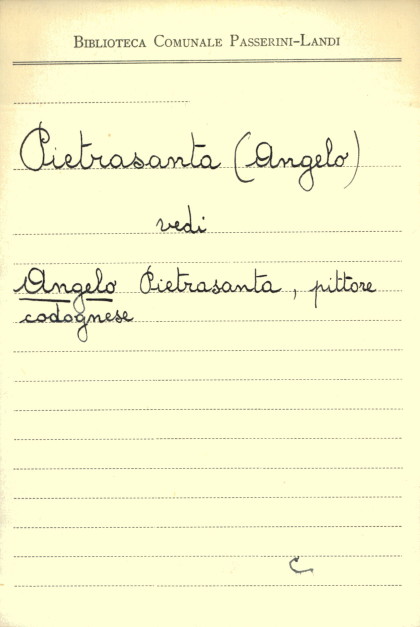 BIBLIOTECA COMUNALE PASSERINI-LANDI
Pietrasanta (Angelo)
vedi
Angelo Pietrasanta, pittore
codognese
C